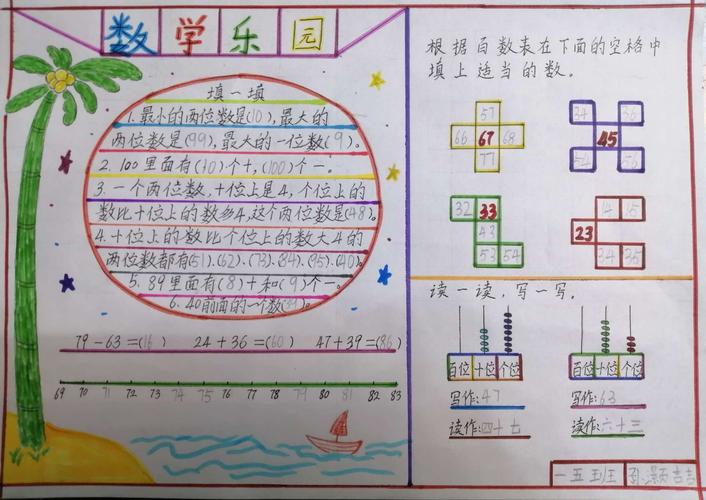 数学乐园
填一填
1.最小的两位数是(10),最大的
两位数是(99),最大的一位数(9)。
2.100里面有(10)个十,(100)个一。
3.一个两位数,十位上是4,个位上的
数比十位上的数多4,这个两位数是(48)。
4.十位上的数比个位上的数大4的
两位数都有(51).(62).(73).(84).(95).(40)。
5.89里面有(8)十和(9)个一。
6.40前面的一个数(39)。
79-63=(16) 24+36=(60) 47+39=(86)
69 70 71 72 73 74 75 76 77 78 79 80 81 82 83
根据百数表在下面的空格中
填上适当的数。
57
66 67 68
77
34 36
45
54 56
32 33
43
53 54
14 15
23
34 35
读一读,写一写。
百位 十位 个位
写作:47
读作:四十七
百位 十位 个位
写作:63
读作:六十三
一五班 灏吉吉